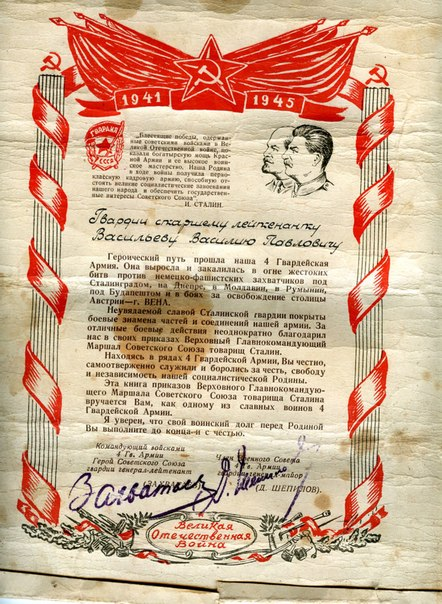 1941 1945
ГВАРДИЯ
СССР
„Блестящие победы, одержан-
ные советскими войсками в Ве-
ликой Отечественной войне, по-
казали богатырскую мощь Крас-
ной Армии и ее высокое воин-
ское мастерство. Наша Родина
в ходе войны получила перво-
классную кадровую армию, способную от-
стоять великие социалистические завоевания
нашего народа и обеспечить государствен-
ные интересы Советского Союза“
И. СТАЛИН.
Гвардии старшему лейтенанту
Васильеву Василию Павловичу
Героический путь прошла наша 4 Гвардейская
Армия. Она выросла и закалилась в огне жестоких
битв против немецко-фашистских захватчиков под
Сталинградом, на Днепре, в Молдавии, в Румынии,
под Будапештом и в боях за освобождение столицы
Австрии—г. ВЕНА.
Неувядаемой славой Сталинской гвардии покрыты
боевые знамена частей и соединений нашей армии. За
отличные боевые действия неоднократно благодарил
нас в своих приказах Верховный Главнокомандующий
Маршал Советского Союза товарищ Сталин.
Находясь в рядах 4 Гвардейской Армии, Вы честно,
самоотверженно служили и боролись за честь, свободу
и независимость нашей социалистической Родины.
Эта книга приказов Верховного Главнокомандую-
щего Маршала Советского Союза товарища Сталина
вручается Вам, как одному из славных воинов 4
Гвардейской Армии.
Я уверен, что свой воинский долг перед Родиной
Вы выполните до конца и с честью.
Командующий войсками Член Военного Совета
4 Гв. Армии 4 Гв. Армии
Герой Советского Союза гвардии генерал-майор
гвардии генерал-лейтенант
(Д. ШЕПИЛОВ)
Великая
Отечественная
Война